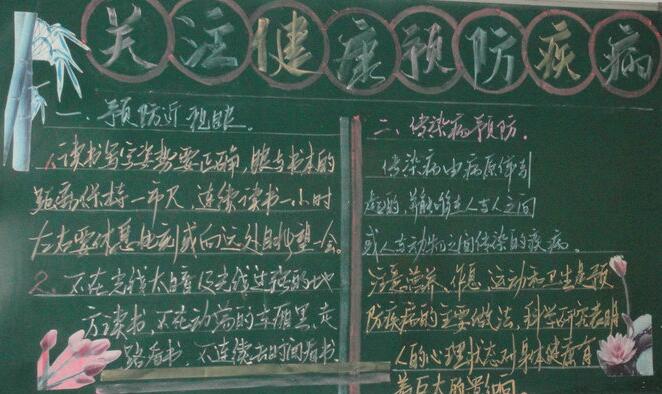 关注健康预防疾病
一、预防近视眼。
1、读书写字姿势要正确，眼与书本的
距离保持一市尺，连续读书一小时
左右要休息片刻或向远处眺望一会。
2、不在光线太暗及光线过强的地
方读书，不在动荡的车厢里、走
路看书，不连续长时间看书.
二、传染病预防.
传染病由病原体引
起的，并能够在人与人之间
或人与动物之间传染的疾病。
注意营养、作息、运动和卫生是预
防疾病的主要做法，科学研究表明
人的心理状态对身体健康有
着巨大的影响.